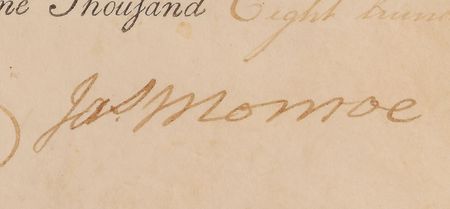 ne Thousand Eight hun
Jas Monroe